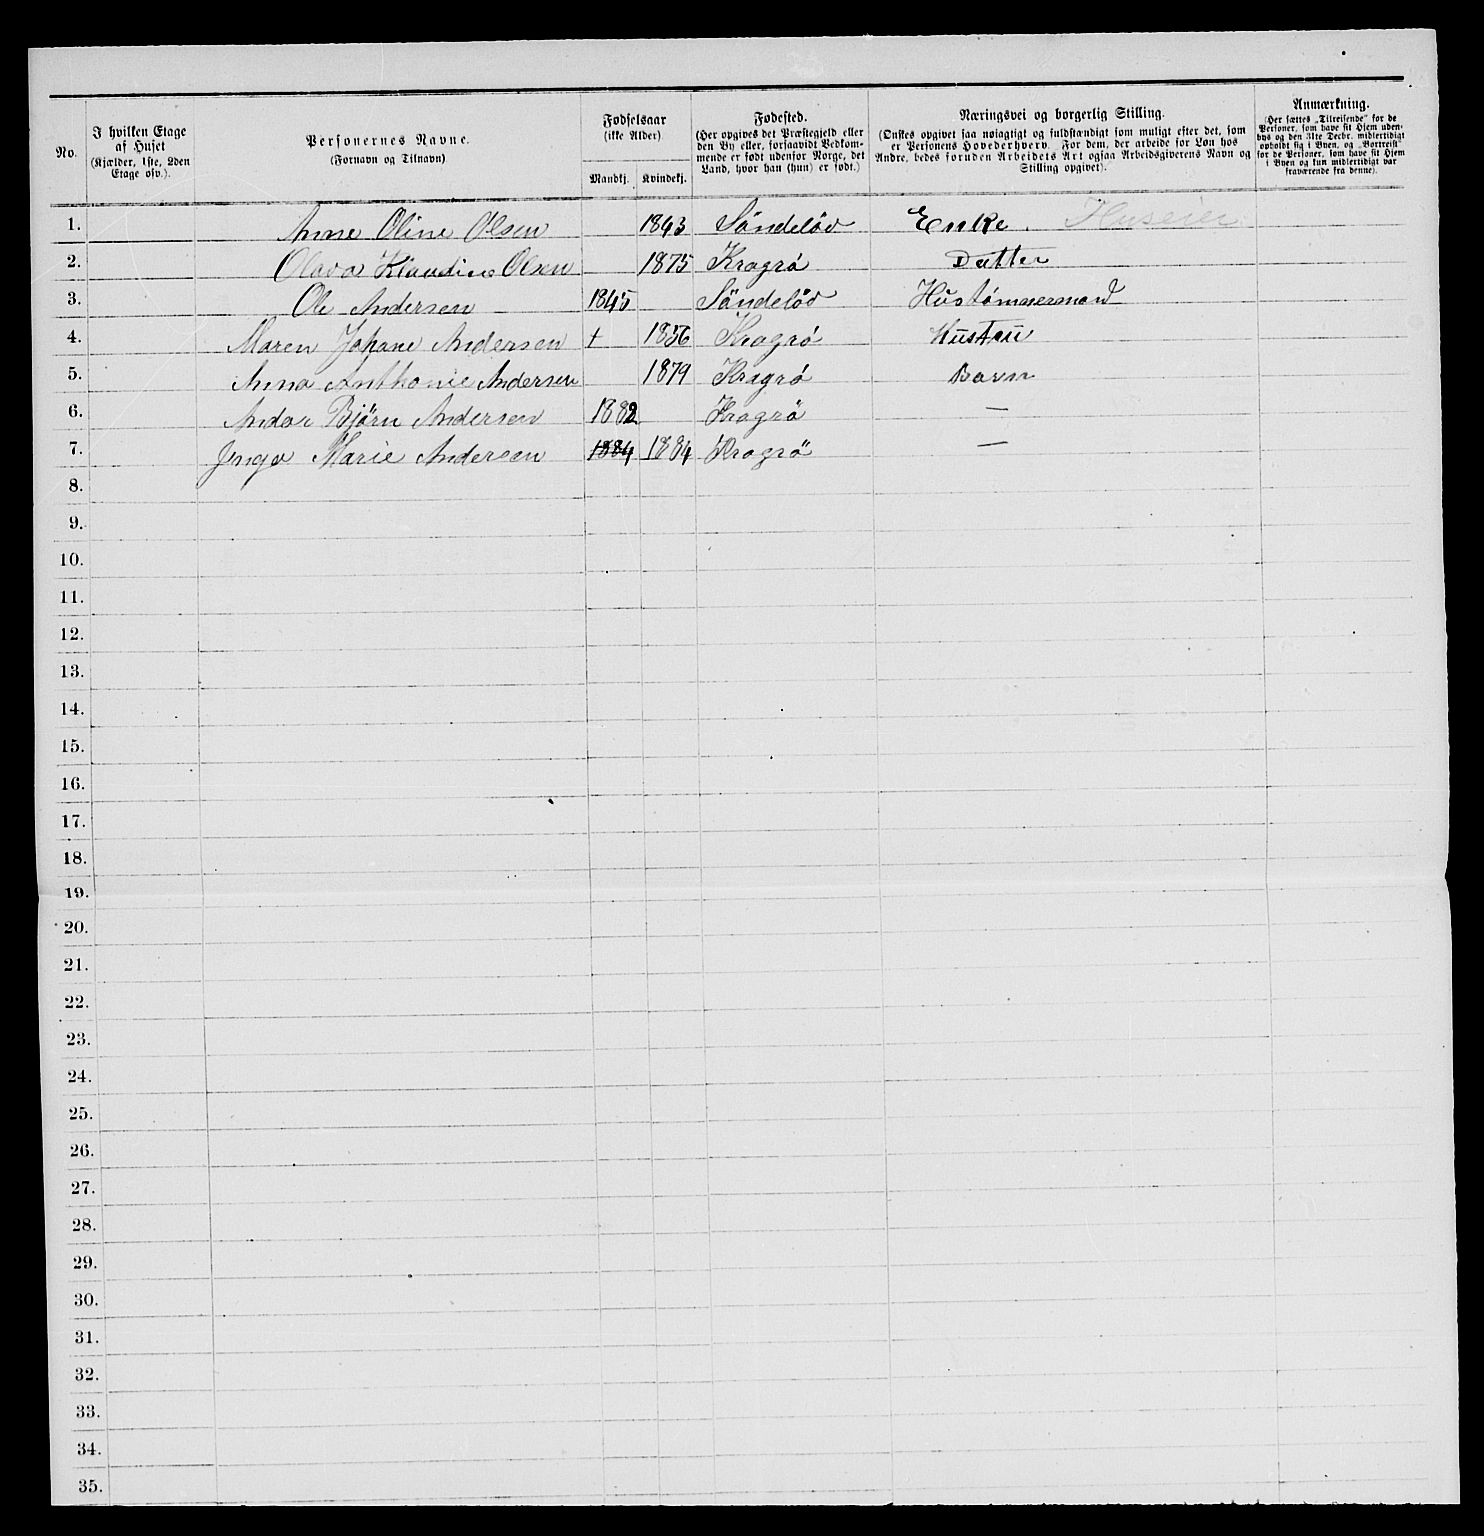 No.
I hvilken Etage af Huset (Kjælder, 1ste, 2den Etage osv.).
Personernes Navne. (Fornavn og Tilnavn).
Fødselsaar (ikke Alder).
Mandkj. Kvindekj.
Fødested. (Her opgives det Præstegjeld eller den By eller, forsaavidt Vedkommende er født udenfor Norge, det Land, hvor han (hun) er født.)
Næringsvei og borgerlig Stilling. (Ønskes opgivet saa nøiagtigt og fuldstændigt som muligt efter det, som er Personens Hovederhverv. For dem, der arbeide for Løn hos Andre, bedes foruden Arbeidets Art ogsaa Arbeidsgiverens Navn og Stilling opgivet).
Anmærkning. (Her sættes „Tilreisende" for de Personer, som have sit Hjem udenbys og den 31te Decbr. midlertidigt opholdt sig i Byen, og „Bortreist" for de Personer, som have sit Hjem i Byen og kun midlertidigt var fraværende fra denne).
1. Anne Oline Olsen 1843 Söndelöv Enke. Huseier
2. Olava Klaudine Olsen 1875 Kragrö Datter
3. Ole Andersen 1845 Söndelöv Hustømmermand
4. Maren Johane Andersen + 1856 Kragrö Hustru
5. Anna Anthonie Andersen 1879 Kragrö Barn
6. Andor Bjørn Andersen 1882 Kragrö —
7. Jnga Marie Andersen 1884 1884 Kragrö —
8.
9.
10.
11.
12.
13.
14.
15.
16.
17.
18.
19.
20.
21.
22.
23.
24.
25.
26.
27.
28.
29.
30.
31.
32.
33.
34.
35.